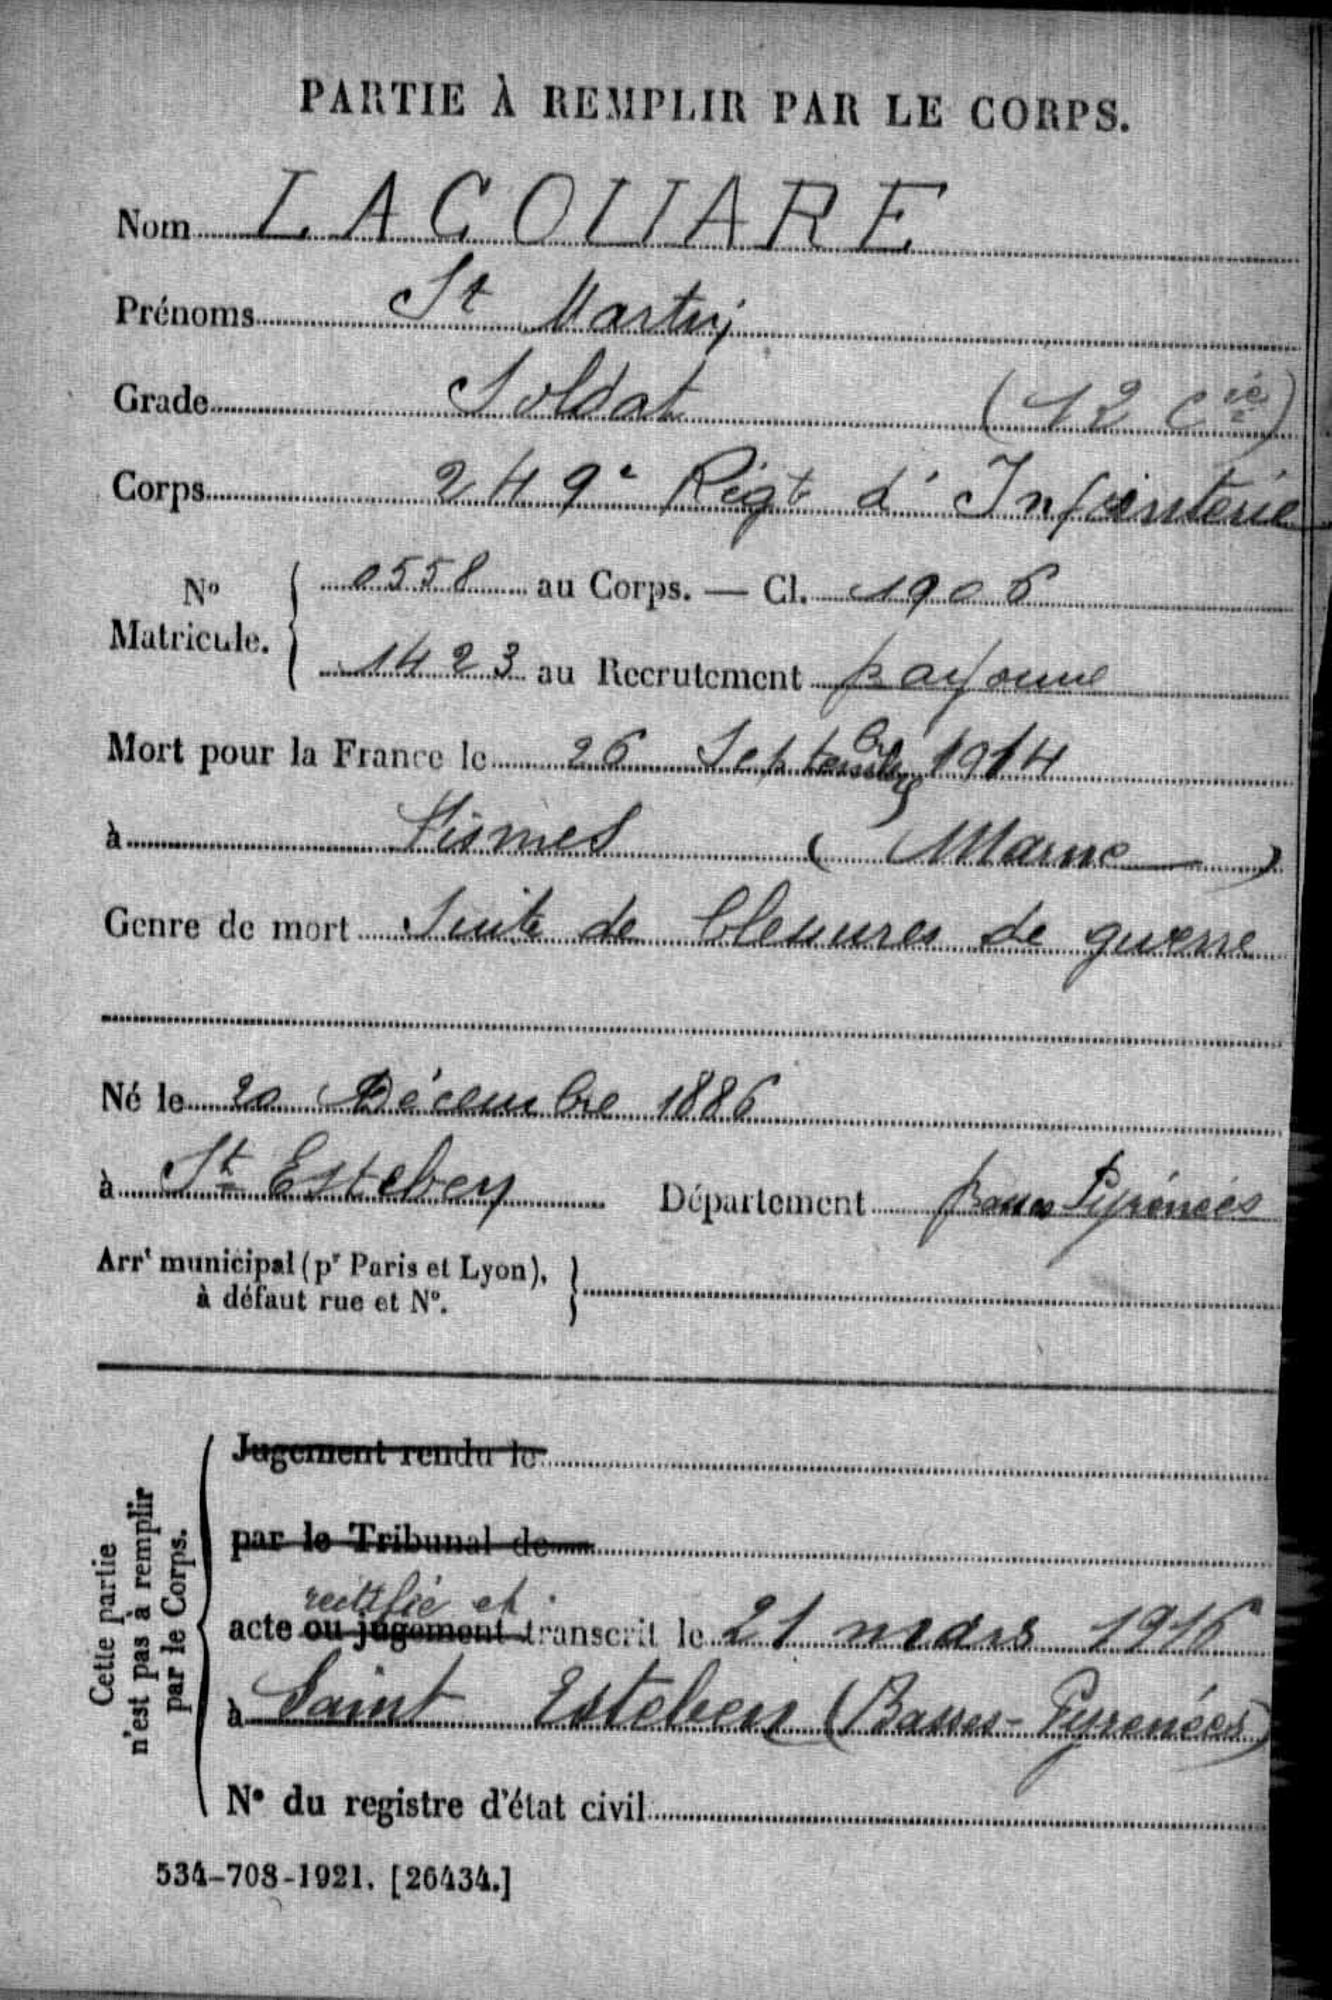 PARTIE À REMPLIR PAR LE CORPS.
Nom LACOUARE
Prénoms St Martin
Grade Soldat (12 Cie)
Corps 249e Régt d'Infanterie
No Matricule. 0558 au Corps. — Cl. 1906
1423 au Recrutement Bayonne
Mort pour la France le 26 Septembre 1914
à Fismes (Marne)
Genre de mort Suite de blessures de guerre
Né le 20 Décembre 1886
à St Esteben Département Basses Pyrénées
Arrt municipal (pr Paris et Lyon),
à défaut rue et No.
Cette partie
n'est pas à remplir
par le Corps.
Jugement rendu le
par le Tribunal de
rectifié et
acte ou jugement transcrit le 21 mars 1916
à Saint Esteben (Basses-Pyrénées)
No du registre d'état civil
534-708-1921. [26434.]